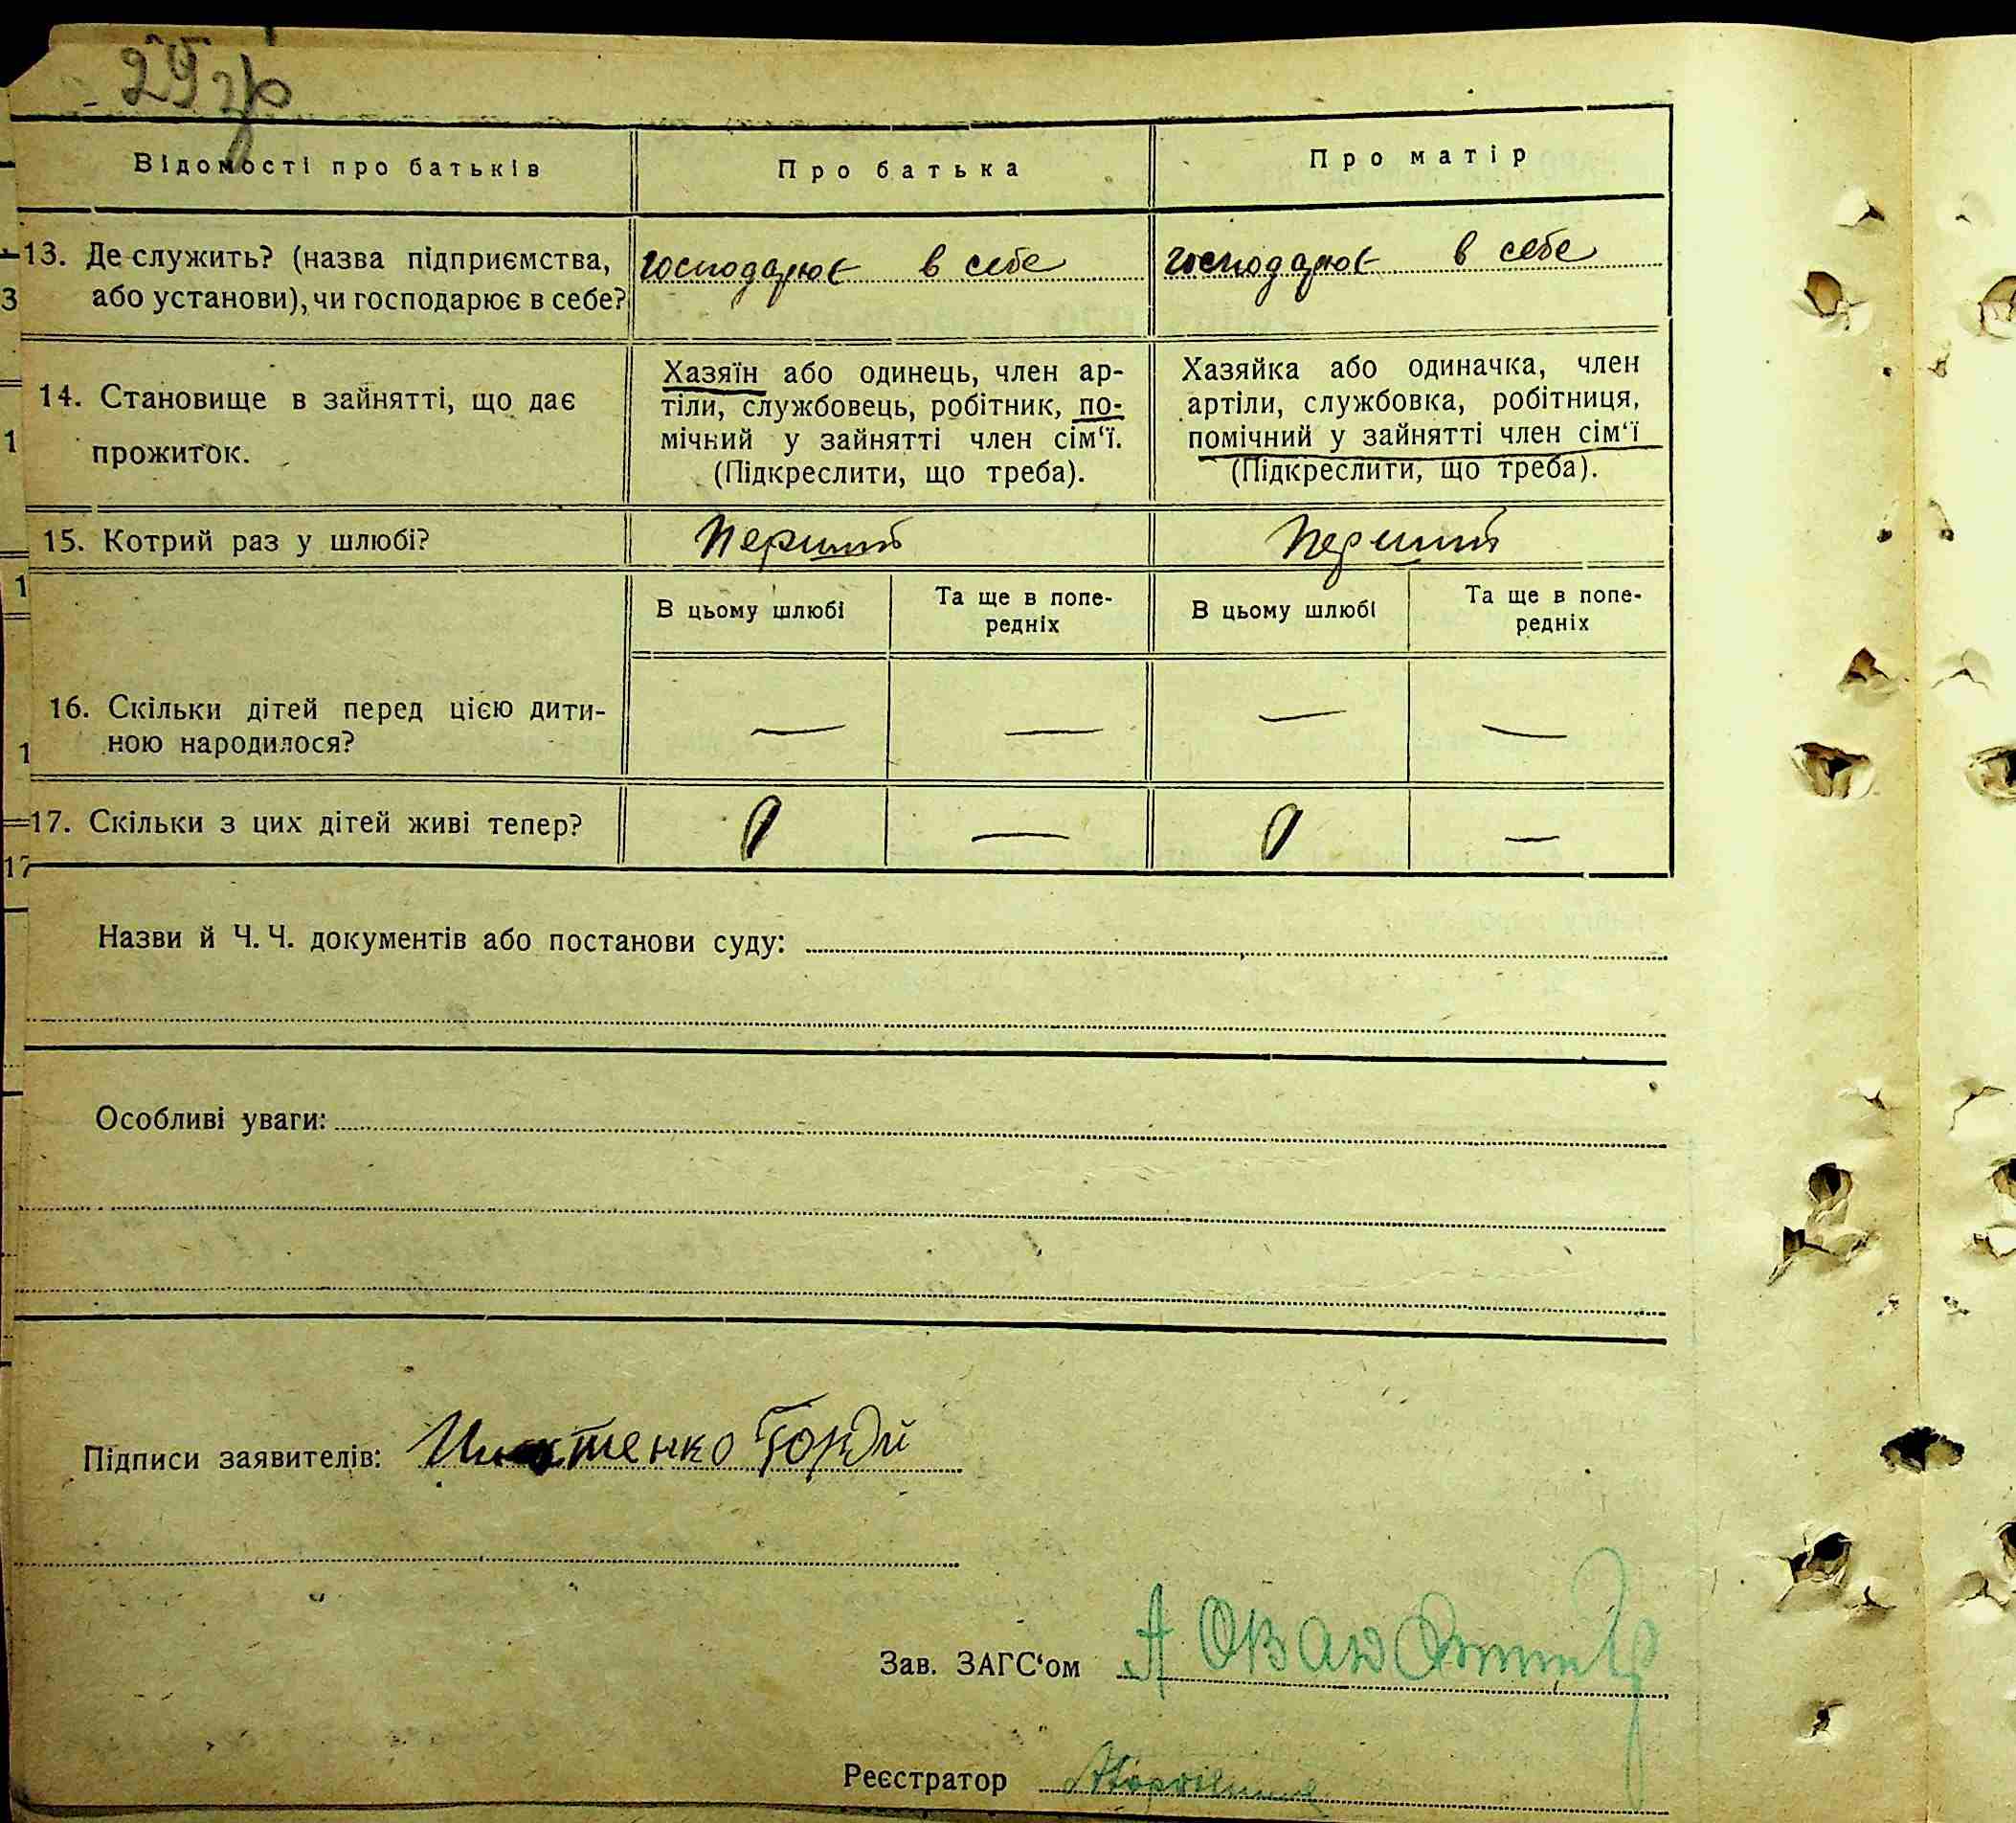 Відомості про батьків
Про батька
Про матір
13. Де служить? (назва підприємства, або установи), чи господарює в себе?
господарює в себе
господарює в себе
14. Становище в зайнятті, що дає прожиток.
Хазяїн або одинець, член ар-
тіли, службовець, робітник, по-
мічний у зайнятті член сім‘ї.
(Підкреслити, що треба).
Хазяйка або одиначка, член
артіли, службовка, робітниця,
помічний у зайнятті член сім‘ї
(Підкреслити, що треба).
15. Котрий раз у шлюбі?
перший
перший
В цьому шлюбі
Та ще в попе-
редніх
В цьому шлюбі
Та ще в попе-
редніх
16. Скільки дітей перед цією дити-
ною народилося?
— — — —
17. Скільки з цих дітей живі тепер?
0 — 0 —
Назви й Ч. Ч. документів або постанови суду:
Особливі уваги:
Підписи заявителів:
Зав. ЗАГС‘ом
Реєстратор